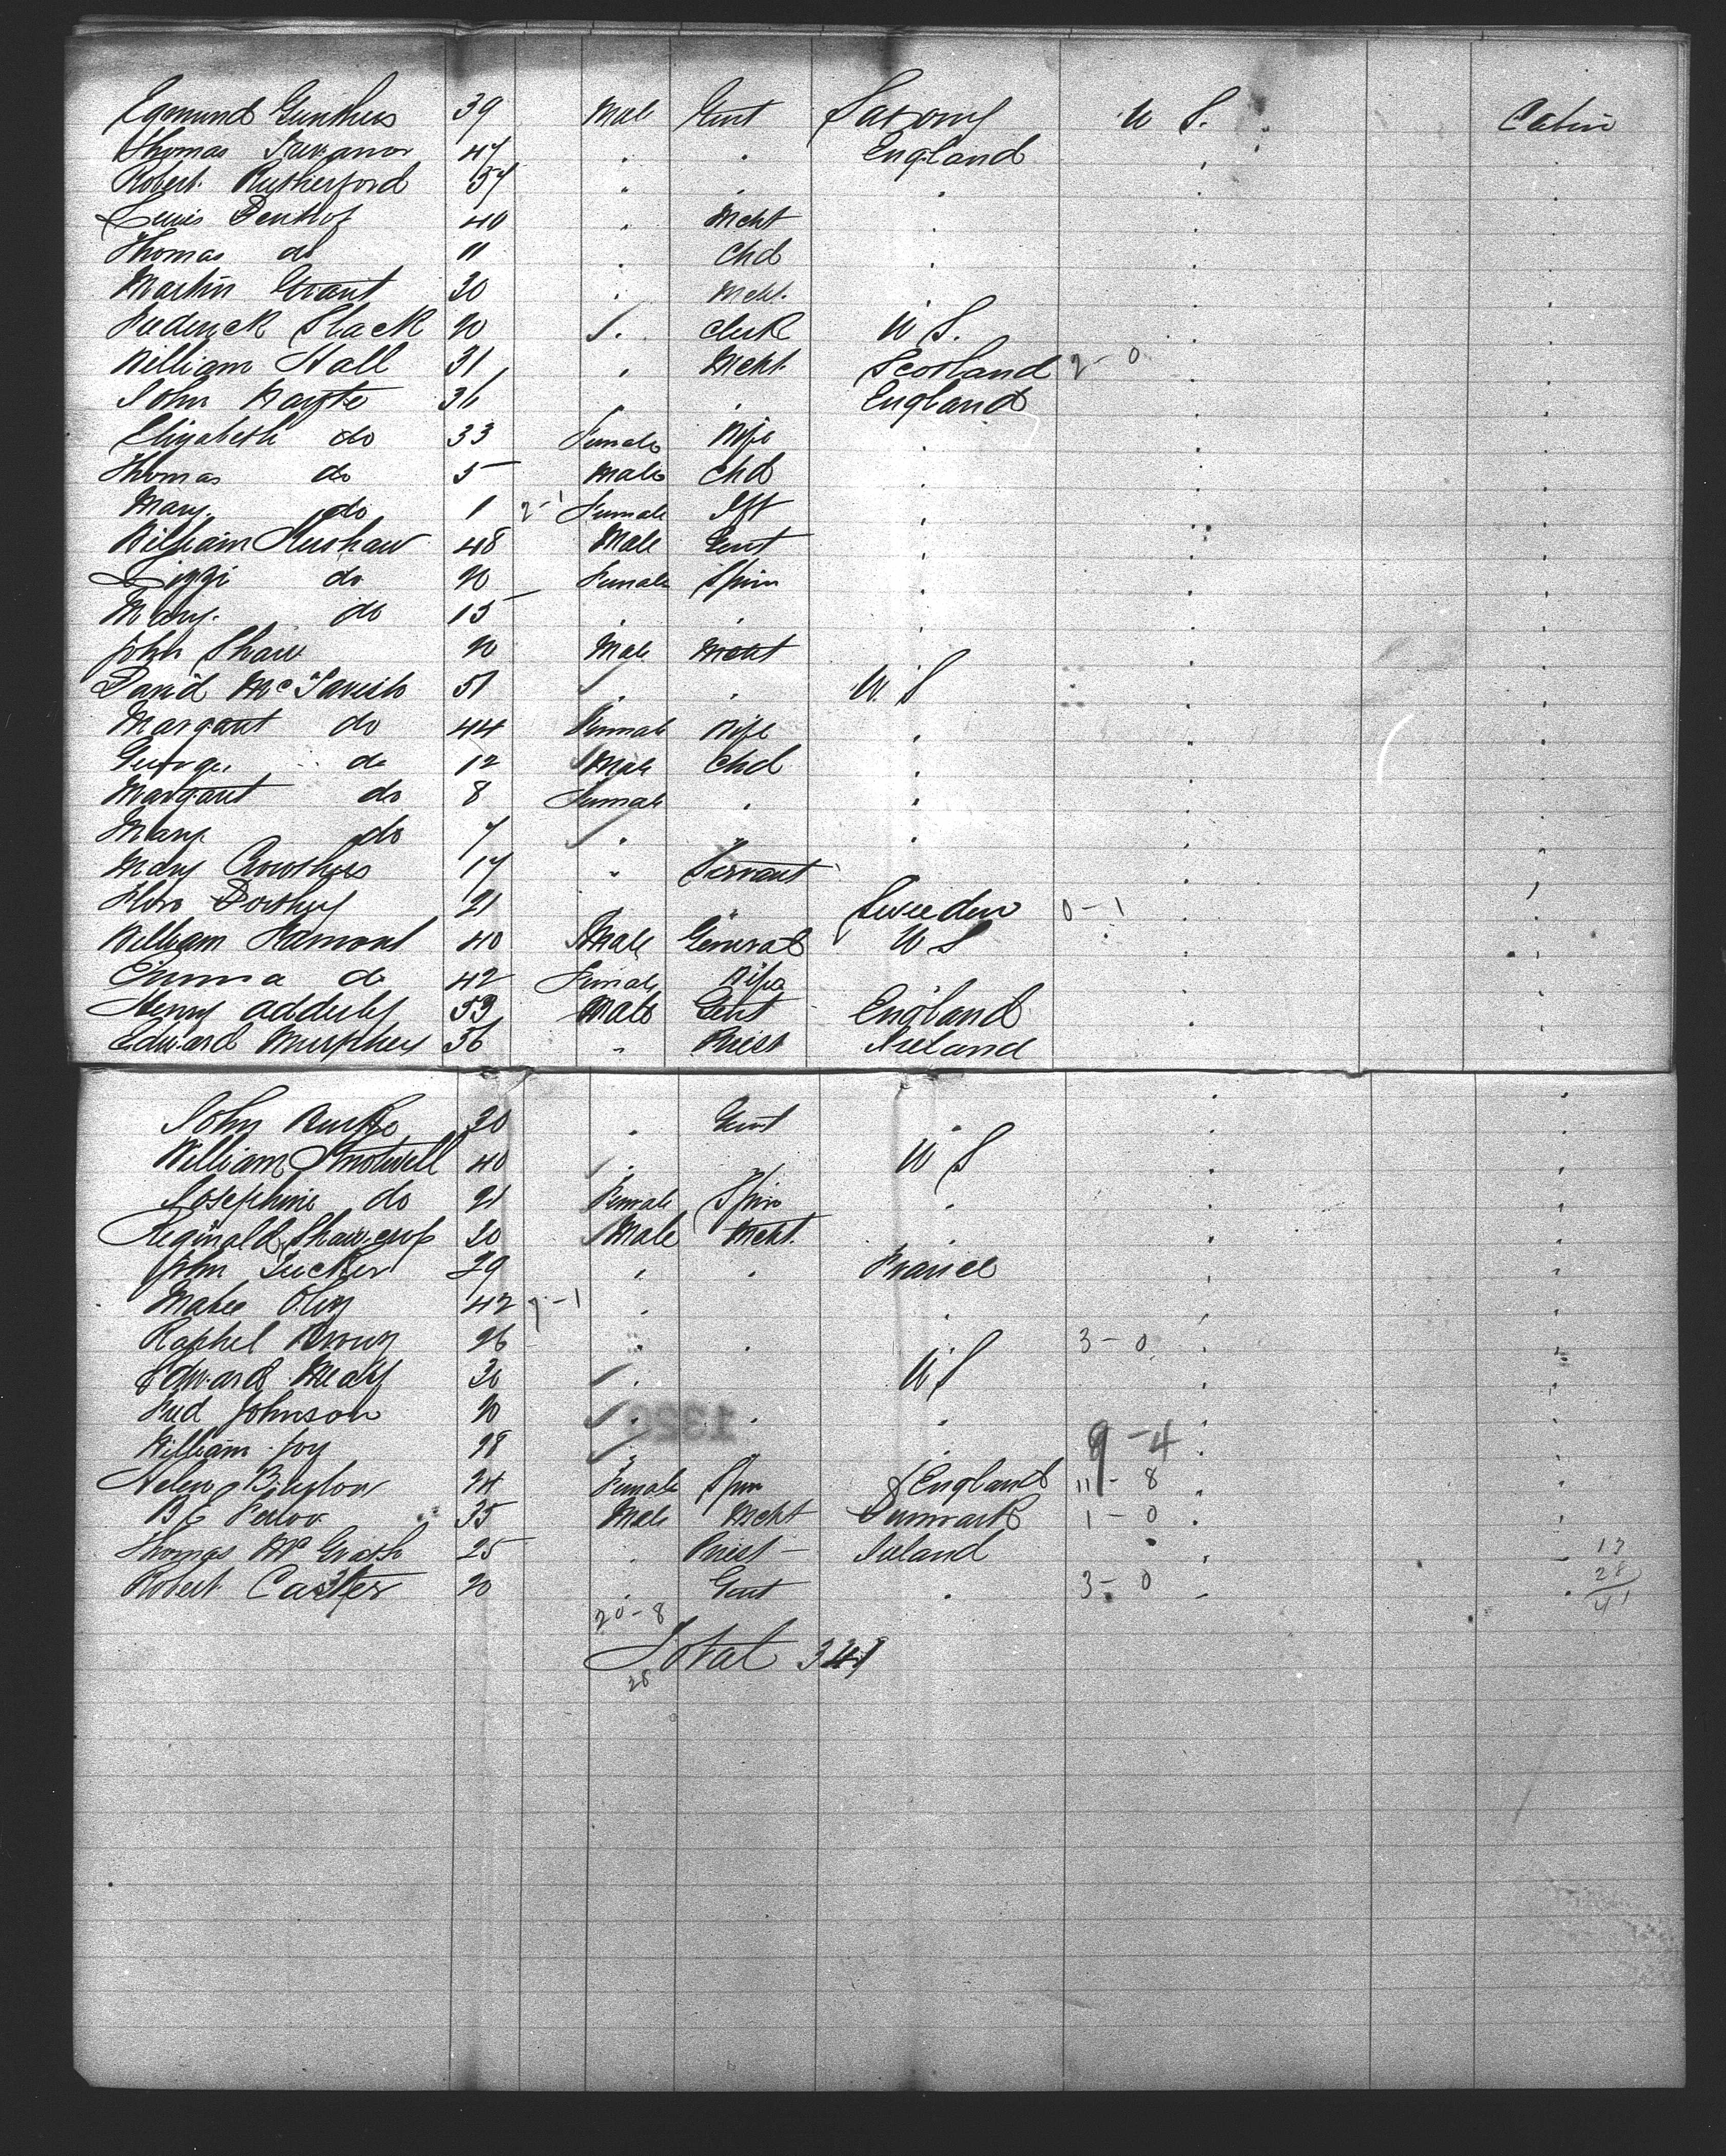 Egmund Gunthers 39 Male Gent Saxony U S. Cabin
Thomas 47 " " England
Robert Rutherford 57 " " "
Lewis 40 " Mcht "
Thomas do 11 " Chd "
Martin Grant 30 " Mcht. "
Frederick Slack 20 " Clerk U S.
William Hall 31 " Mcht Scotland 2-0
John 36 " " England
Elizabeth do 33 Female Wife "
Thomas do 5 Male Chd "
Mary do 1 2-1 Female Ift "
William Kershaw 48 Male Gent "
Lizzi do 20 Female Spin "
Mary. do 15 " " "
John Shaw 20 Male Mcht "
David McTavish 51 " " U. S
Margaret do 44 Female Wife "
George do 12 Male Chd "
Margaret do 8 Female " "
Mary do 7 " " "
Mary Crowthers 17 " Servant
21 " Sweden 0-1
William 40 Male General U S
Emma do 42 Female Wife
Henry Adderly 53 Male Gent England
Edward Murphey 56 " Priest Ireland
John Burke 30 " Gent "
William 40 " U S
Josephine do 21 Female Spin "
Reginald 30 Male Mcht. "
John Tucker 29 " " France
42 7-1 " "
Raphel 26 " " 3-0
Edward Mealy 30 " U S
Fred Johnson 20 " " "
1320
William Joy 28 " " 9-4
Helen 24 Female Spin England 11-8
B E 35 Male Mcht Denmark 1-0
Thomas McGrath 25 " Priest Ireland 13
Robert Carter 20 " Gent " 3-0 28
41
20-8
Total 341
28